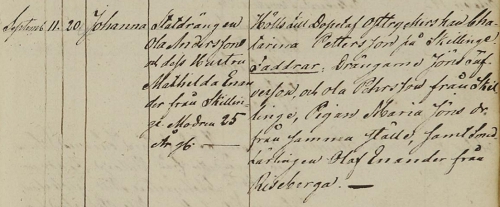 Septemb. 11. 20. Johanna
Statdrängen
Ola Andersson
och dess Hustru
Mathilda Enan-
der från Skillin-
ge. Modren 25
År g.
Hölls till Dopet af
Catharina Pettersson på Skillinge
Faddrar: Drängarne Jöns
och Ola Pehrsson från Skil-
linge, Pigan Maria Jöns dr
från samma ställe, samt
lärlingen Olof Enander från
Riseberga. —